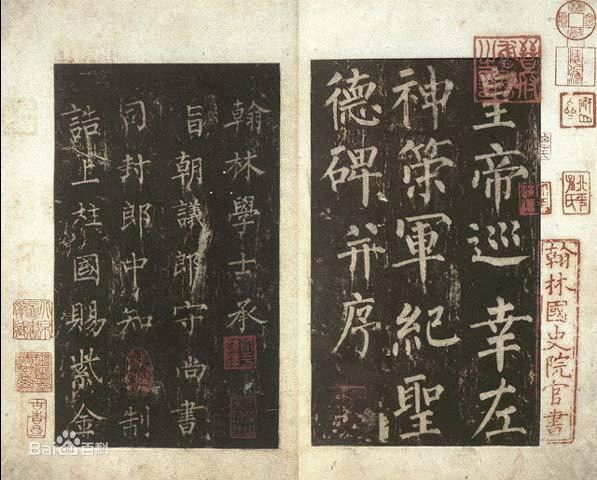 皇帝巡幸左
神策軍紀聖
德碑并序
翰林國史院官書
翰林學士承
旨朝議郎守尚書
司封郎中知制
誥上柱國賜紫金
Bai百科